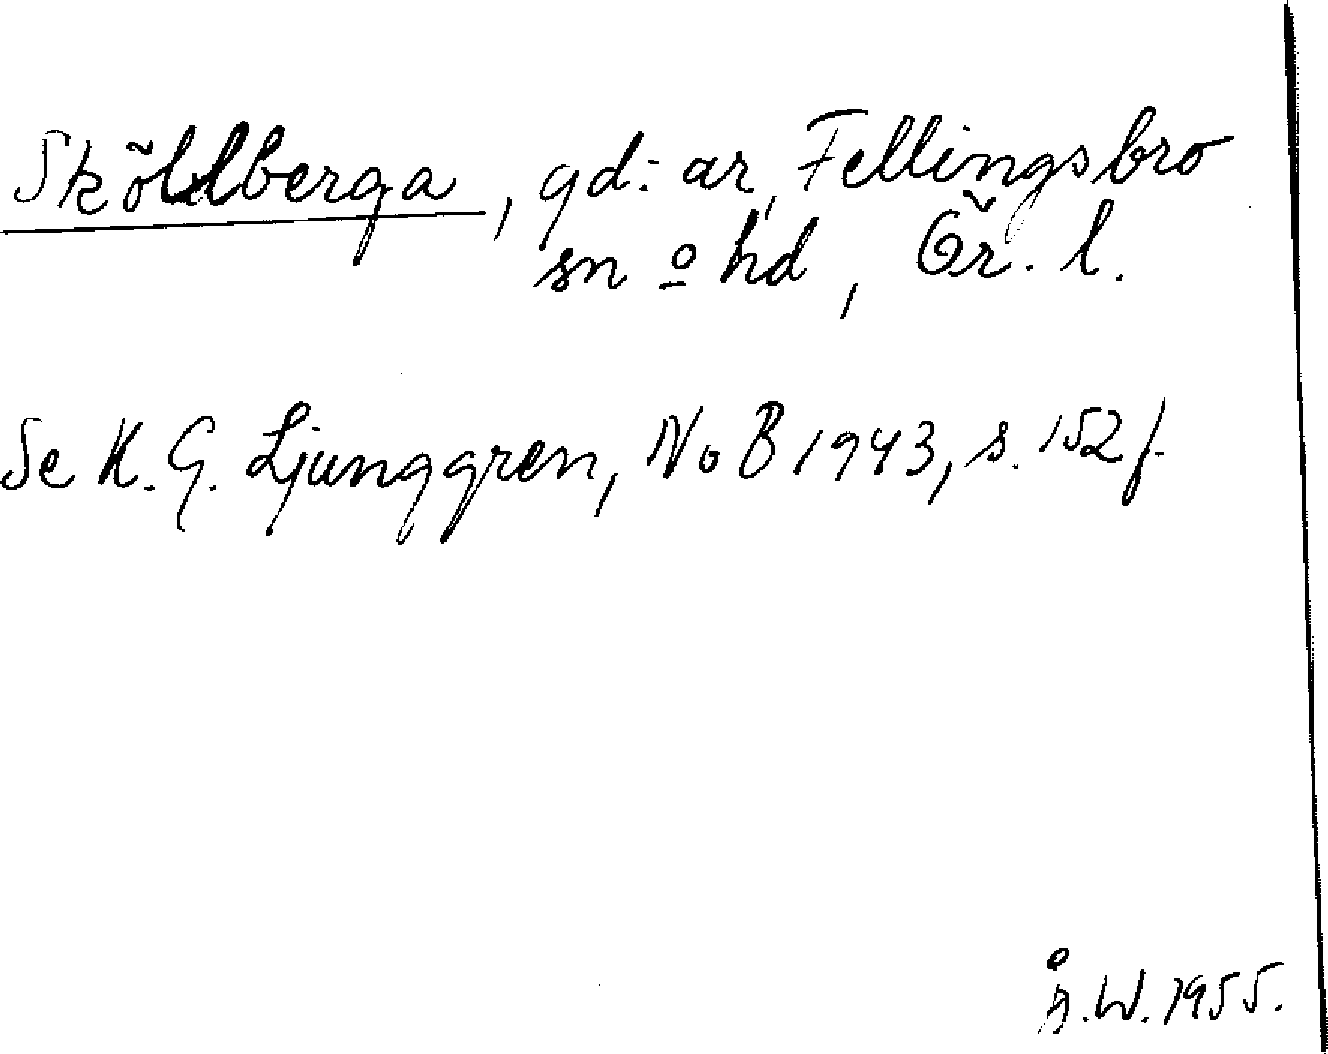 Sköldberga, gd:ar, Fellingsbro
sn o hd, Ör. l.
Se K. G. Ljunggren, NoB 1943, s. 152 f.
Å.W. 1955.